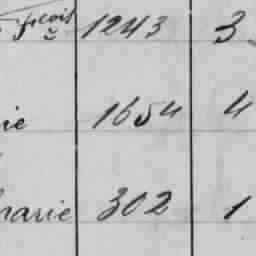 fçois 1243 3
ie 1654 4
marie 302 1